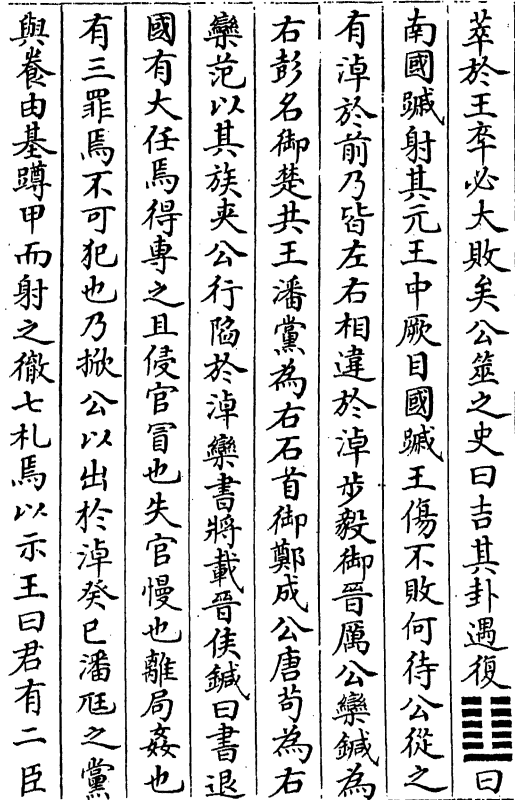 萃於王卒必大敗矣公筮之史曰吉其卦遇復䷗曰
南國䠞射其元王中厥目國䠞王傷不敗何待公從之
有淖於前乃皆左右相違於淖步毅御晉厲公欒鍼為
右彭名御楚共王潘黨為右石首御鄭成公唐苟為右
欒范以其族夾公行陷於淖欒書將載晉侯鍼曰書退
國有大任焉得專之且侵官冒也失官慢也離局姦也
有三罪焉不可犯也乃掀公以出於淖癸巳潘尫之黨
與養由基蹲甲而射之徹七札焉以示王曰君有二臣